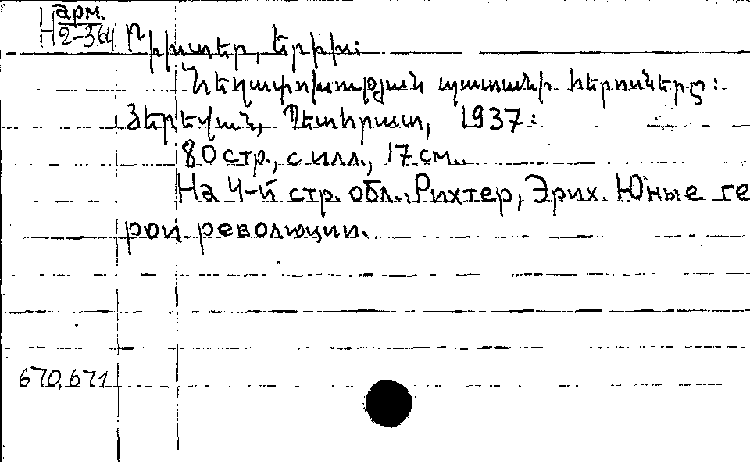 арм.
Н 2-364
Րիխտեր, Երիխ։
Հեղափոխության պատանի հերոսները։
Յերեվան, Պետհրատ, 1937։
80 стр., с илл., 17 см.
На 4-й стр. обл.: Рихтер, Эрих. Юные ге
рои революции.
670,671